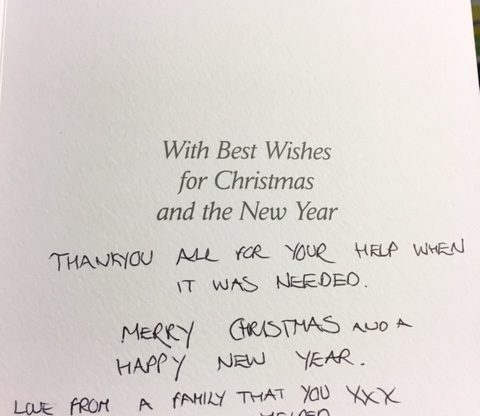 With Best Wishes
for Christmas
and the New Year
THANKYOU ALL FOR YOUR HELP WHEN
IT WAS NEEDED.
MERRY CHRISTMAS AND A
HAPPY NEW YEAR.
LOVE FROM A FAMILY THAT YOU XXX
HELPED